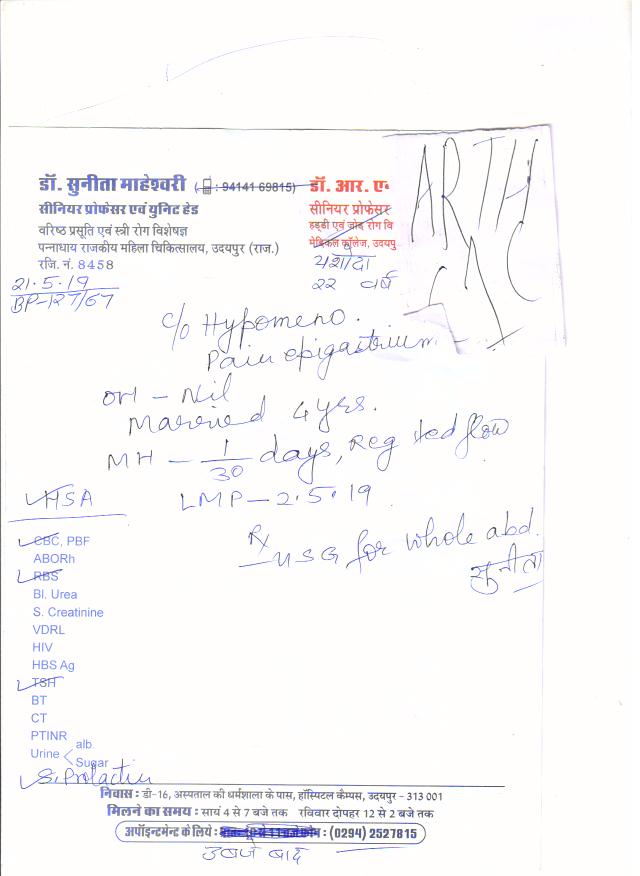 डॉ. सुनीता माहेश्वरी (: 94141 69815)
सीनियर प्रोफेसर एवं युनिट हेड
वरिष्ठ प्रसूति एवं स्त्री रोग विशेषज्ञ
पन्नाधाय राजकीय महिला चिकित्सालय, उदयपुर (राज.)
रजि. नं. 8458
डॉ. आर. ए
सीनियर प्रोफेसर
हड्डी एवं जोड़ रोग वि
मेडिकल कॉलेज, उदयपु
ARTH
यशोदा
२२ वर्ष
21.5.19
BP-127/67
c/o Hypomeno.
Pain epigastrium
OH - Nil
Married 4 yrs.
MH - 1/30 days, Reg flow
LMP - 2.5.19
HSA
Rx
USG for whole abd.
सुनीता
CBC, PBF
ABORh
RBS
Bl. Urea
S. Creatinine
VDRL
HIV
HBS Ag
TSH
BT
CT
PTINR
Urine < alb.
Sugar
S. Prolactin
निवास : डी-16, अस्पताल की धर्मशाला के पास, हॉस्पिटल कैम्पस, उदयपुर - 313 001
मिलने का समय : सायं 4 से 7 बजे तक रविवार दोपहर 12 से 2 बजे तक
अपॉइन्टमेन्ट के लिये : (0294) 2527815
बजे बाद